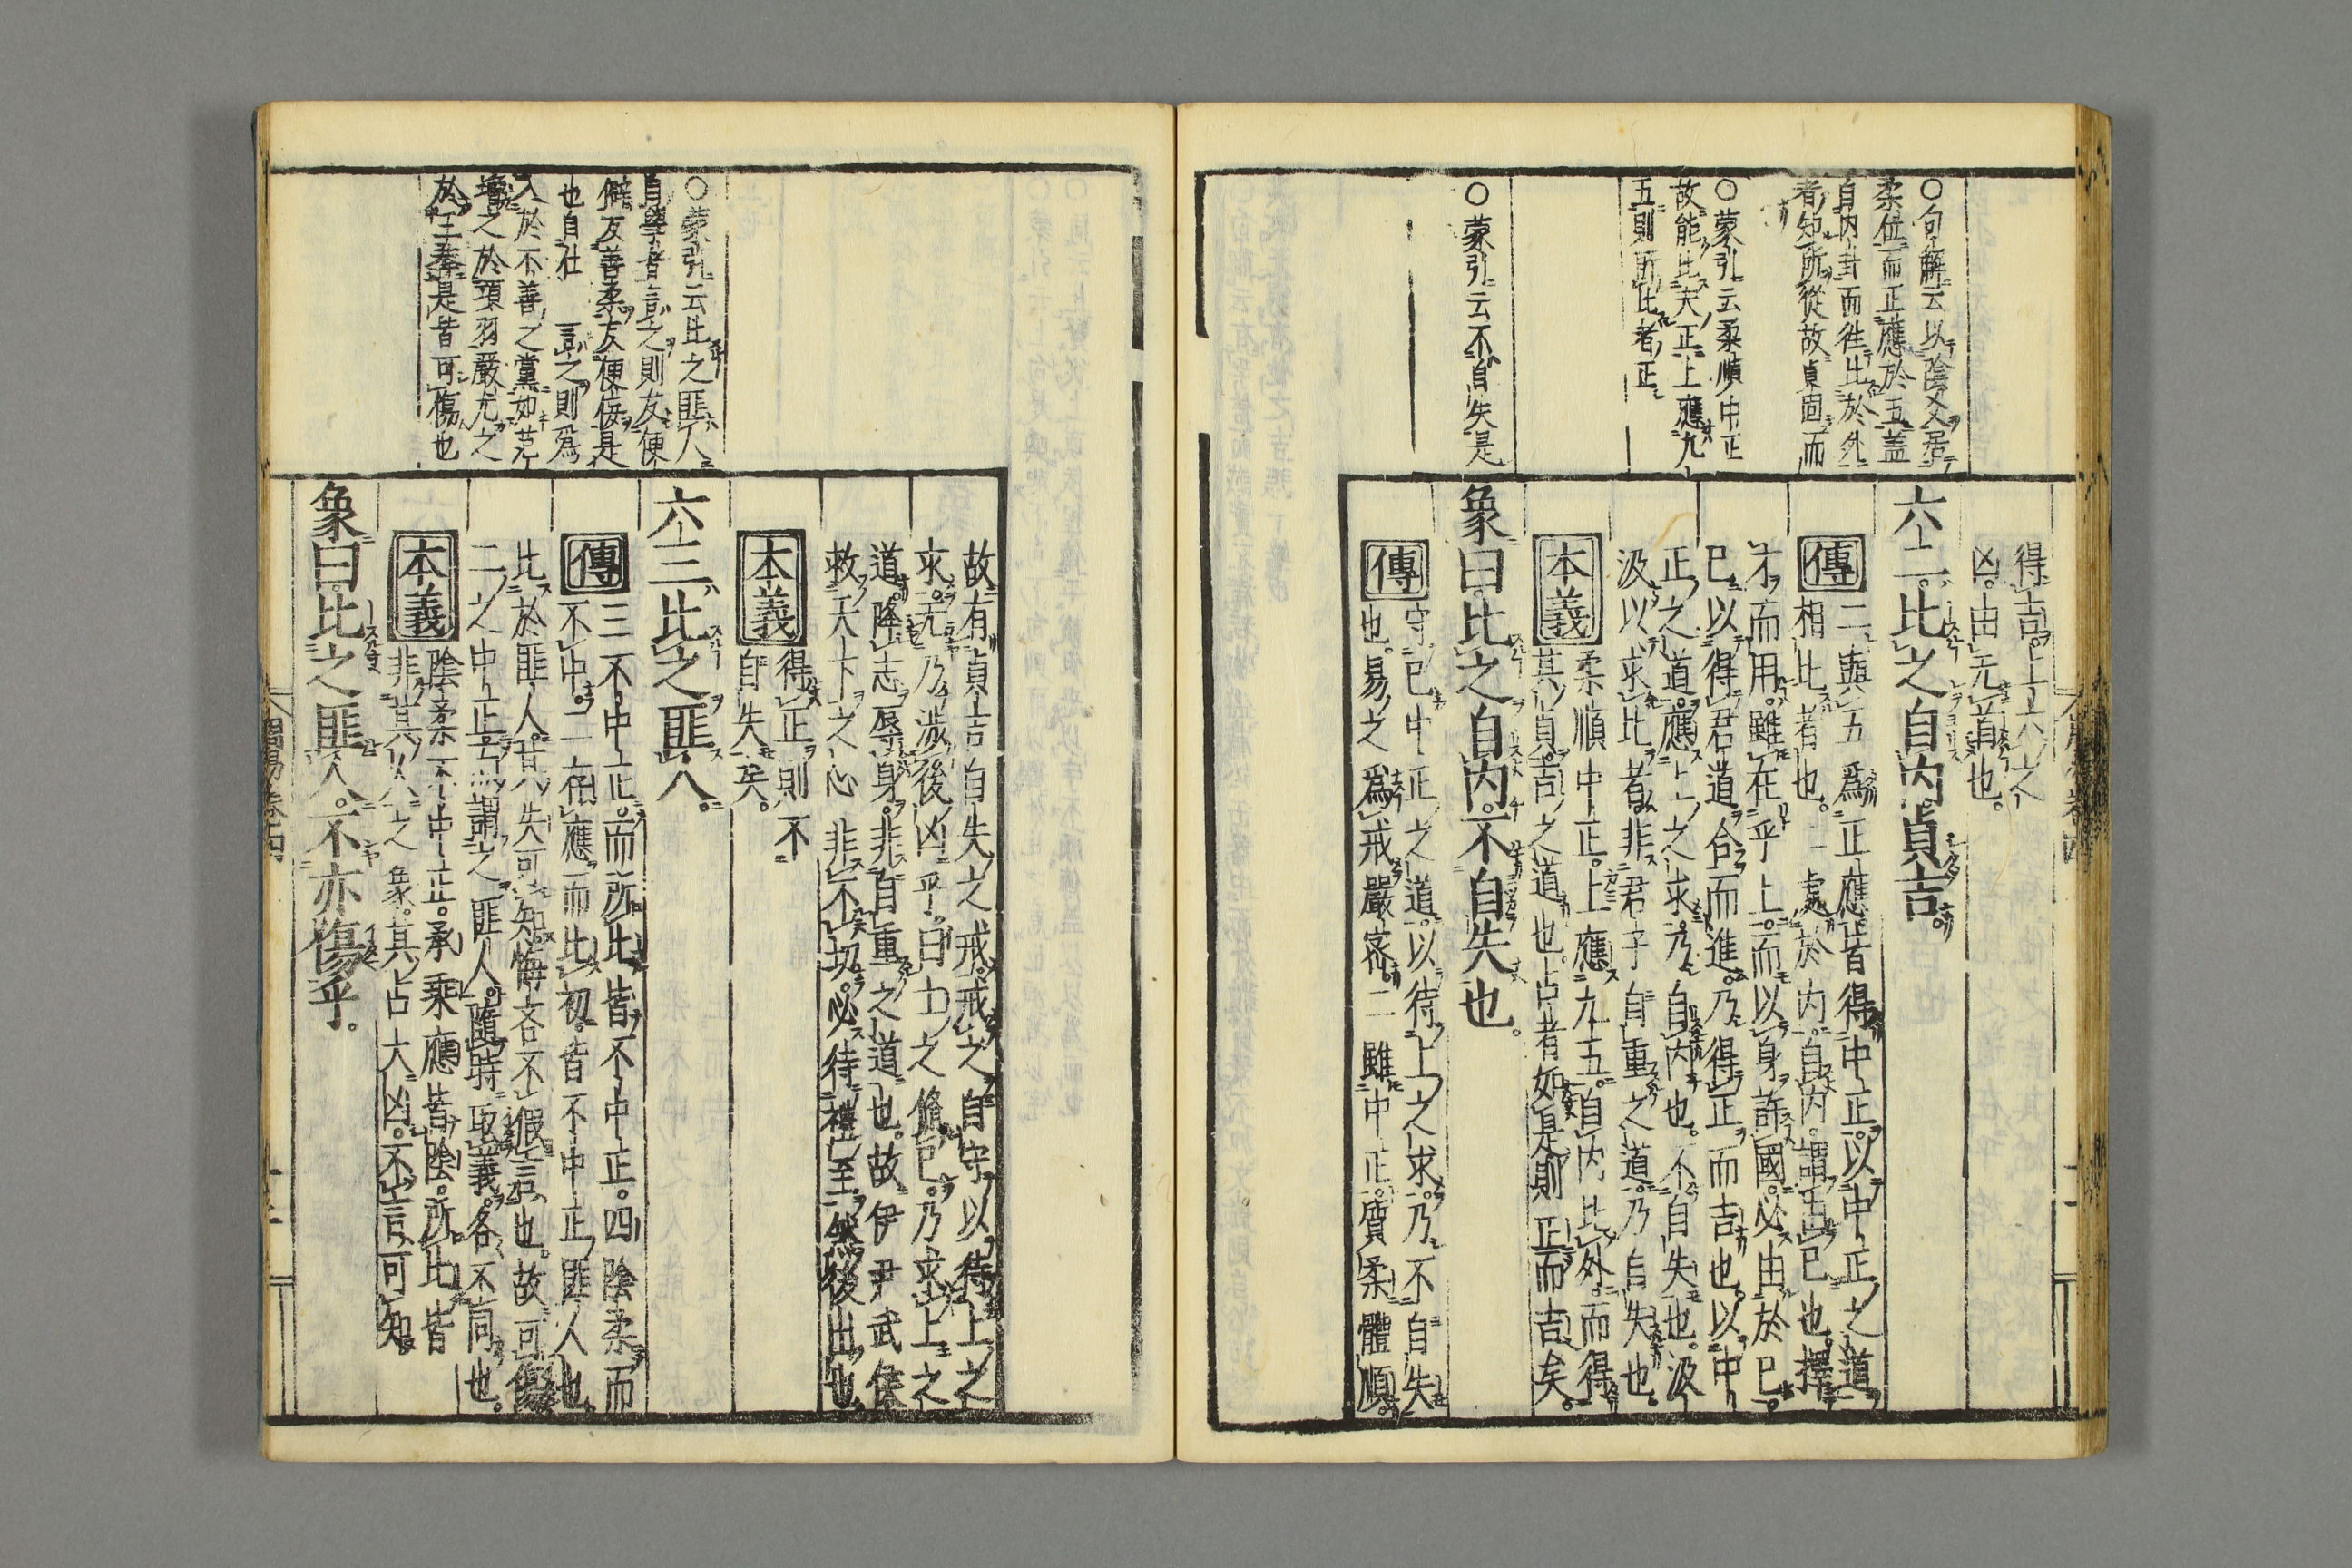 得吉上六之
凶。由无首也。
六二。比之自内。貞吉。
傳
二與五爲正應。皆得中正。以中正之道
相比者也。二處於内。自内。謂由己也。擇
才而用。雖在乎上。而以身許國。必由於已。
已以得君道合而進。乃得正而吉也。以中
正之道。應上之求。乃自内也。不自失也。汲
汲以求比者。非君子自重之道。乃自失也。
本義
柔順中正。上應九五。自内比外。而得
其貞。吉之道也。占者如是。則正而吉矣。
象曰。比之自内。不自失也。
傳
守已中正之道。以待上之求。乃不自失
也。易之爲戒嚴密。二雖中正。質柔體順。
○句解云以陰爻居
柔位而正應於五盖
自内卦而往比於外
者知所從故貞固而
○蒙引云柔順中正
故能比夫正上應九
五則所比者正
○蒙引云不自失是
故有貞吉自失之戒。戒之自守以待上之
求。无乃涉後凶乎。曰。士之脩已。乃求上之
道。降志辱身。非自重之道也。故伊尹武侯
救天下之心非不切。必待禮至。然後出也。
本義
得正則不
自失矣。
六三。比之匪人。
傳
三不中正。而所比皆不中正。四陰柔而
不中。二存應而比初。皆不中正。匪人也。
比於匪人。其失可知。悔吝不假言也。故可傷
二之中正。而謂之匪人。隨時取義。各不同也。
本義
陰柔不中正。承乘應皆陰。所比皆
非其人之象。其占大凶。不言可知
象曰。比之匪人。不亦傷乎。
○蒙引云比之匪人
自學者言之則友便
僻友善柔友便侫是
也自仕　言之則爲
入於不善之黨如范
增之於項羽嚴尤之
於王莽是皆可傷也
周易卷四